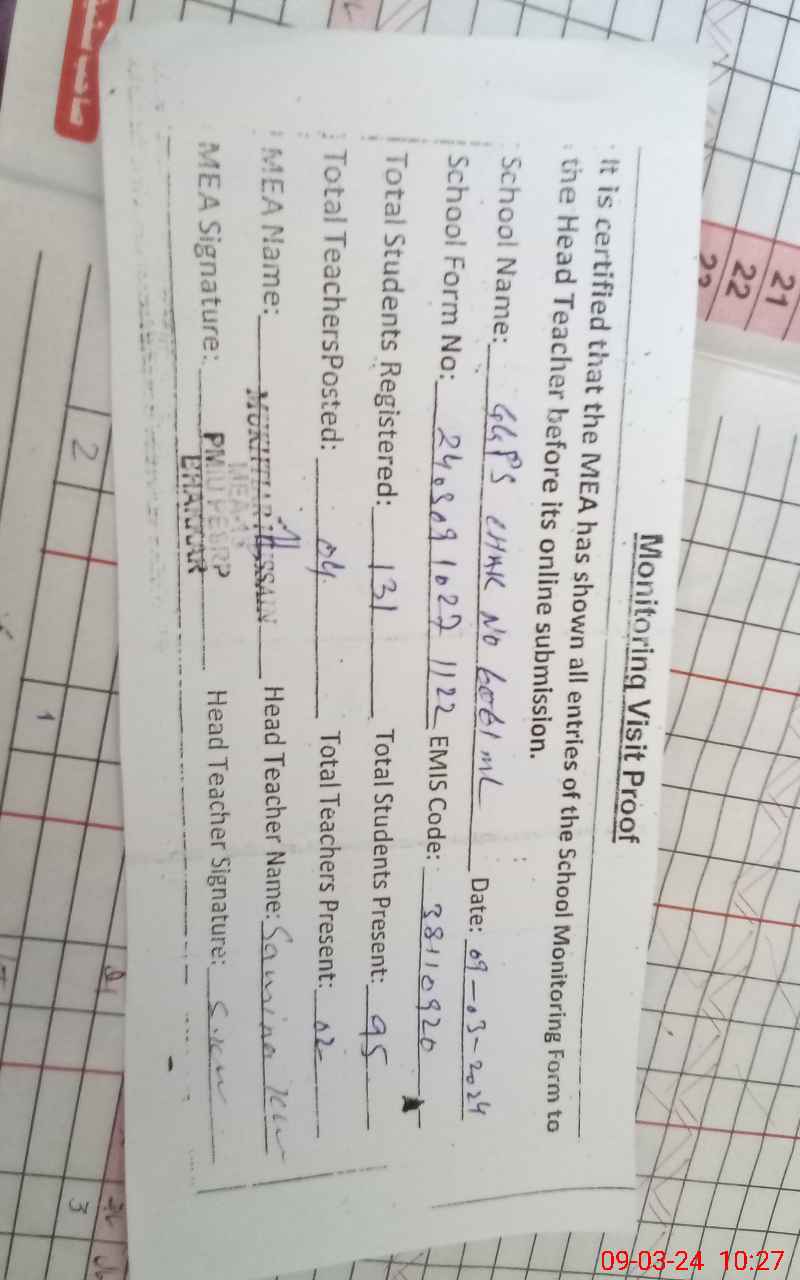 Monitoring Visit Proof
It is certified that the MEA has shown all entries of the School Monitoring Form to
the Head Teacher before its online submission.
School Name: GGPS CHAK NO 60/61 ML Date: 09-03-2024
School Form No: 24030910271122 EMIS Code: 38110920
Total Students Registered: 131 Total Students Present: 95
Total TeachersPosted: 04 Total Teachers Present: 02
MEA Name: MUKHTIAR HUSSAIN Head Teacher Name: Samina
MEA Signature: BHAKKAR Head Teacher Signature:
21
22
22
2
1
3
09-03-24 10:27